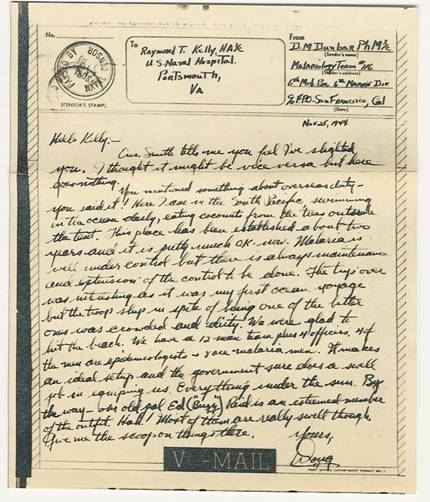 No.
To
Raymond T. Kelly, HA1/c
U.S. Naval Hospital.
Portsmouth,
Va
From
D.M. Dunbar PhM2/c
(Sender's name)
Malariology Team #16
(Sender's address)
6th Mob. 6th Marine Div
c/o FPO. San Francisco, Cal
(Date)
Nov 25, 1944
(CENSOR'S STAMP)
Hello Kelly:-
Smith tells me you feel I've slighted
you. I thought it might be vice versa but here
goes nothing.
You mentioned something about overseas duty-
you said it! Here I am in the South Pacific swimming
in the ocean daily, eating coconuts from the trees outside
the tent. This place has been established about two
years and it is pretty much OK now. Malaria is
well under control but there is always maintenance
and extension of the control to be done. The trip over
was interesting as it was my first ocean voyage
but the troop ship in spite of being one of the better
ones was crowded and dirty. We were glad to
hit the beach. We have a 12 man team plus 4 officers. 4 of
the men are epidemiologists + 8 are malaria men. It makes
an ideal setup and the government sure does a swell
job in equiping us. Everything under the sun. By
the way- our old pal Ed (Buzz) Reid is an esteemed member
of the outfit. Hah! Most of them are really swell though.
Give me the scoop on things there.
Yours,
Doug
V···-MAIL
POST OFFICE DEPARTMENT PERMIT NO. 1